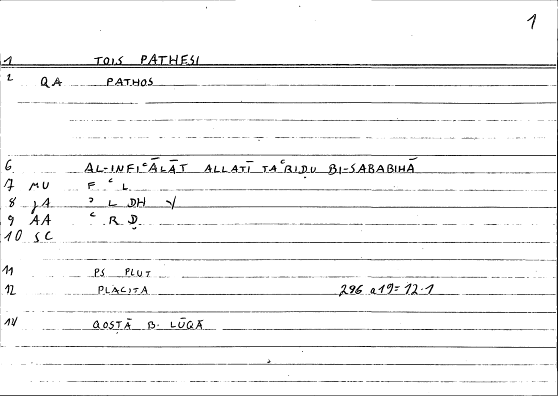 1
1 TOIS PATHESI
2 QA PATHOS
6 AL-INFIʿĀLĀT ALLATĪ TAʿRIḌU BI-SABABIHĀ
7 MU F ʿ L
8 JA ʾ L DH Y
9 AA ʿ R Ḍ
10 SC
11 PS PLUT
12 PLACITA 296 a19=12.1
14 QOSṬĀ B. LŪQĀ